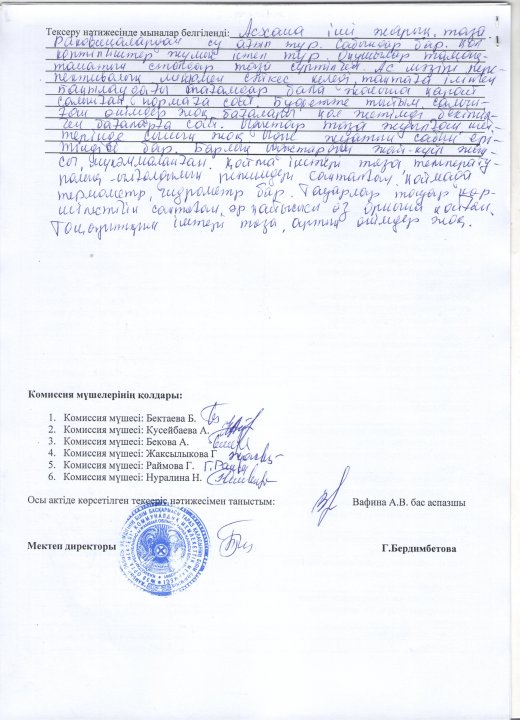 Тексеру нәтижесінде мыналар белгіленді: Асхана іші жарық, таза
Раковиналардан су ағып тұр. Сабындар бар. Қол
кептіргіштер жұмыс істеп тұр. Оқушылар тамақ-
танатын столдар таза сүртілген. Ас мәзірі перс-
пективалық мәзірмен сәйкес келеді, тақтаға ілінген
Бақылаудағы тағамдар бала
салынған, нормаға сай. Буфетте тыйым салын-
ған өнімдер жоқ. Бағалары қол жетімді бекітіл-
ген бағаларға сай. Ыдыстар таза жуылған шет-
терінде сынық жоқ. Ыдыс жуатын сабын ері-
тіндісі бар. Барлық ыдыстардың
таңбаланған. Қойма іштері таза температу-
ралық-ылғалдылық режимдері сақталған, қоймада
термометр, гидрометр бар. Тауарлар тауар көр-
шілестігін сақтаған, әрқайсысы өз орнына қойылған.
Тоңазытқыш іштері таза, артық өнімдер жоқ.
Комиссия мүшелерінің қолдары:
1. Комиссия мүшесі: Бектаева Б.
2. Комиссия мүшесі: Кусейбаева А.
3. Комиссия мүшесі: Бекова А.
4. Комиссия мүшесі: Жаксылыкова Г
5. Комиссия мүшесі: Раймова Г.
6. Комиссия мүшесі: Нуралина Н.
Осы актіде көрсетілген тексеріс нәтижесімен таныстым: Вафина А.В. бас аспазшы
Мектеп директоры Г.Бердимбетова